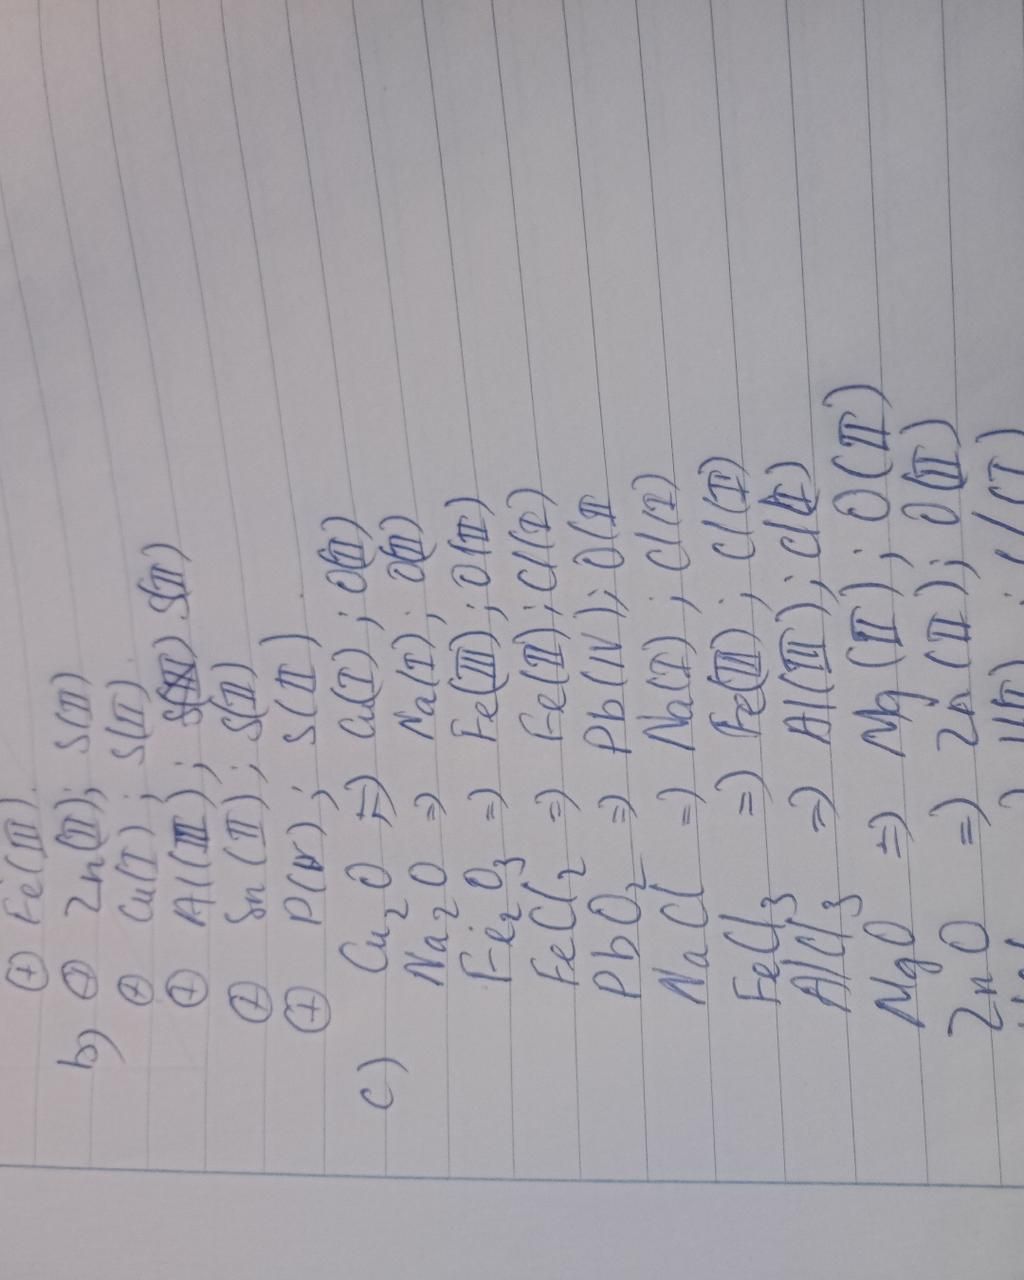 ⊕ Fe(III).
b) ⊕ Zn(II); S(II)
⊕ Cu(I); S(II).
⊕ Al(III); S(II)
⊕ Sn(II); S(II)
⊕ P(V); S(II)
c) Cu₂O => Cu(I); O(II)
Na₂O => Na(I); O(II)
Fe₂O₃ => Fe(III); O(II)
FeCl₂ => Fe(II); Cl(I)
PbO₂ => Pb(IV); O(II
NaCl => Na(I); Cl(I)
FeCl₃ => Fe(III); Cl(I)
AlCl₃ => Al(III); Cl(I)
MgO => Mg(II); O(II)
ZnO => Zn(II); O(II)